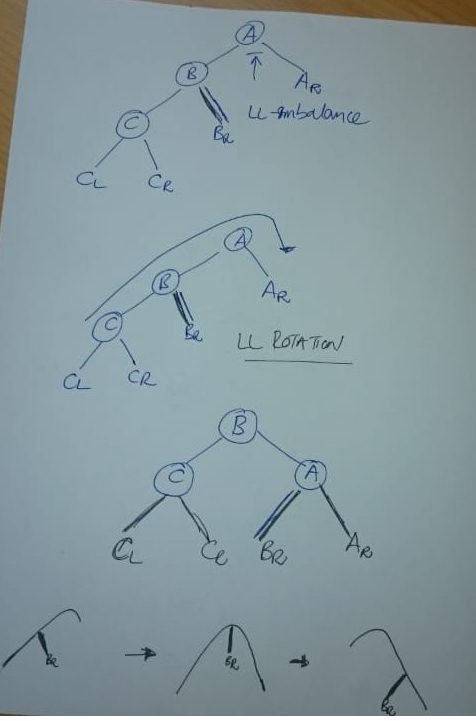 A
B
A_R
LL-imbalance
C
B_R
C_L C_R
A
B
A_R
C
B_R
LL ROTATION
C_L C_R
B
C A
C_L C_R B_R A_R
B_R → B_R → B_R